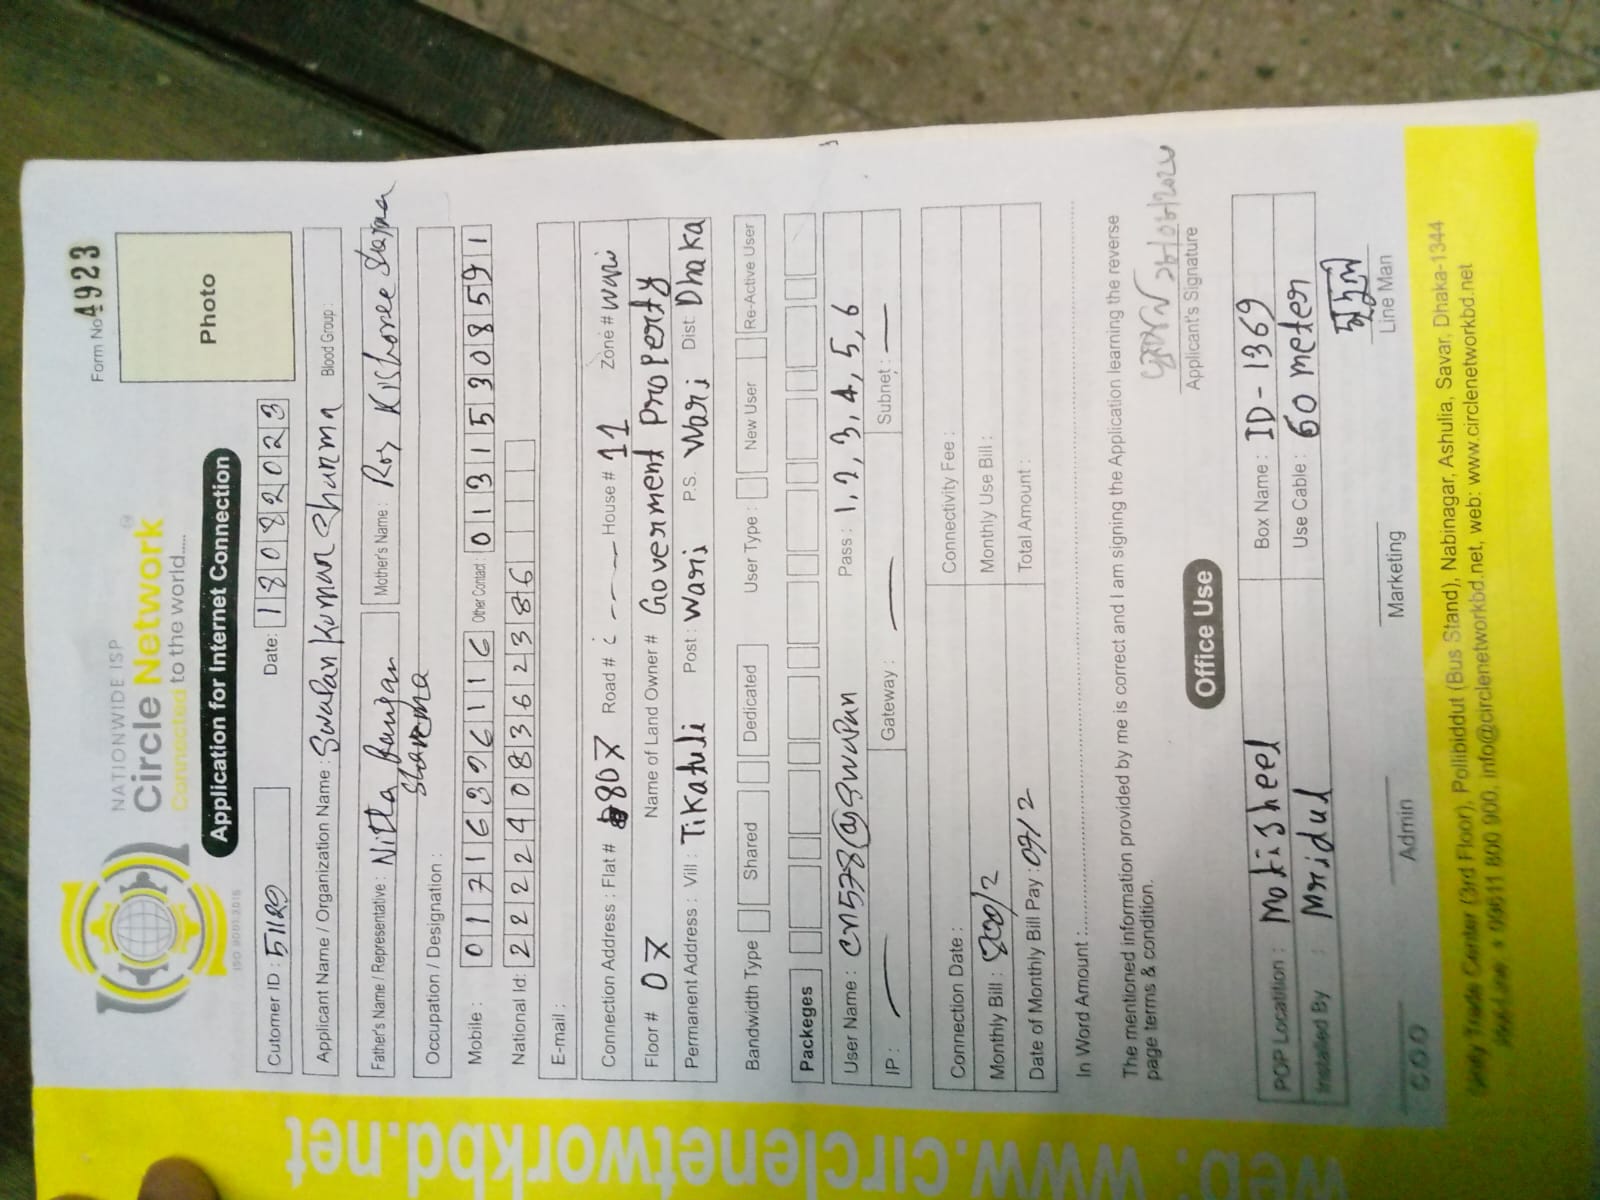 Form No 4923
NATIONWIDE ISP
Circle Network
Connected to the world.....
ISO 9001:2015
Application for Internet Connection
Photo
Cutomer ID : 51129 Date: 18082023
Applicant Name / Organization Name : Swapan Kumar Sharma Blood Group :
Father's Name / Representative : Nitta Ranjan Sharma Mother's Name : Roy Kishoree Sharma
Occupation / Designation :
Mobile : 01716396116 Other Contact : 01315308591
National Id: 2224083623886
E-mail :
Connection Address : Flat # 807 Road # House # 11 Zone # Wari
Floor # 07 Name of Land Owner # Government Property
Permanent Address : Vill : Tikatuli Post : Wari P.S. Wari Dist. Dhaka
Bandwidth Type Shared Dedicated User Type : New User Re-Active User
Packeges
User Name : cn578@swapan Pass : 1,2,3,4,5,6
IP : — Gateway : — Subnet : —
Connection Date : Connectivity Fee :
Monthly Bill : 800/2 Monthly Use Bill :
Date of Monthly Bill Pay : 07/2 Total Amount :
In Word Amount :
The mentioned information provided by me is correct and I am signing the Application learning the reverse
page terms & condition.
Applicant's Signature
Office Use
POP Locatition : Motisheel Box Name : ID-1369
Installed By : Mridul Use Cable : 60 meter
COO Admin Marketing Line Man
Unity Trade Center (3rd Floor), Pollibiddut (Bus Stand), Nabinagar, Ashulia, Savar, Dhaka-1344
Hot-Line: + 09611 800 900, info@circlenetworkbd.net, web: www.circlenetworkbd.net
web: www.circlenetworkbd.net